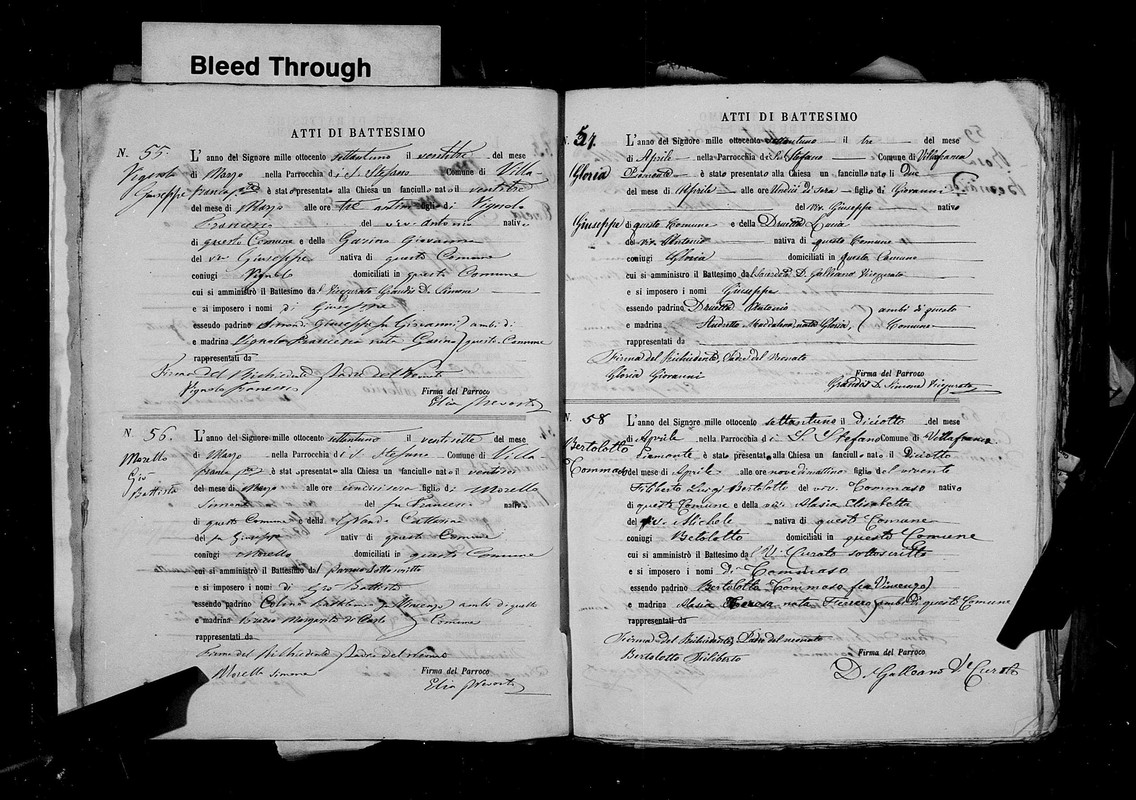 Bleed Through
ATTI DI BATTESIMO
N. 55.
Vignolo
Giuseppe
L'anno del Signore mille ottocento settantuno il ventitre del mese
di Marzo nella Parrocchia di S. Stefano Comune di Villa-
franca è stato presentato alla Chiesa un fanciullo nato il ventitre
del mese di Marzo alle ore tre figlio di Vignolo
Francesco del viv. Antonio nativo
di questo Comune e della Garino Giovanna
del viv. Giuseppe nativa di questo Comune
coniugi Vignolo domiciliati in questo Comune
cui si amministrò il Battesimo dal Vicecurato Grandis D. Simone
e si imposero i nomi di Giuseppe
essendo padrino Giuseppe fu Giovanni ambi di
e madrina Vignolo Francesca nata Garino questo Comune
rappresentati da
Firma del Richiedente Padre del Neonato
Vignolo Francesco
Firma del Parroco
Elia Prevosto
N. 56.
Morello
Gio
Battista
L'anno del Signore mille ottocento settantuno il ventisette del mese
di Marzo nella Parrocchia di S. Stefano Comune di Villa
franca è stato presentato alla Chiesa un fanciullo nato il ventisei
del mese di Marzo alle ore undici sera figlio di Morello
Simone del fu Francesco nativo
di questo Comune e della Catterina
del fu Giuseppe nativa di questo Comune
coniugi Morello domiciliati in questo Comune
cui si amministrò il Battesimo dal parroco sottoscritto
e si imposero i nomi di Gio Battista
essendo padrino Vincenzo ambi di questo
e madrina Margarita di Carlo Comune
rappresentati da
Firma del Richiedente Padre del Neonato
Morello Simone
Firma del Parroco
Elia Prevosto
ATTI DI BATTESIMO
N. 57.
Gloria
Giuseppe
L'anno del Signore mille ottocento settantuno il tre del mese
di Aprile nella Parrocchia di S. Stefano Comune di Villafranca
Piemonte è stato presentato alla Chiesa un fanciullo nato li Due
del mese di Aprile alle ore Undici di sera figlio di Giovanni
del viv. Giuseppe nativo
di questo Comune e della Druetta Lucia
del viv. Antonio nativa di questo Comune
coniugi Gloria domiciliati in questo Comune
cui si amministrò il Battesimo dal D. Galleano Vicecurato
e si imposero i nomi Giuseppe
essendo padrino Druetta Antonio ambi di questo
e madrina Maddalena nata Gloria, Comune
rappresentati da
Firma del Richiedente, Padre del Neonato
Gloria Giovanni
Firma del Parroco
Grandis D. Simone Vicecurato
N. 58
Bertolotto
Tommaso
L'anno del Signore mille ottocento settantuno il diciotto del mese
di Aprile nella Parrocchia di S. Stefano Comune di Villafranca
Piemonte è stato presentato alla Chiesa un fanciullo nato il Diciotto
del mese di Aprile alle ore nove di mattino figlio del vivente
Filiberto Luigi Bertolotto del viv. Tommaso nativo
di questo Comune e della viv. Alasia Elisabetta
del viv. Michele nativa di questo Comune
coniugi Betolotto domiciliati in questo Comune
cui si amministrò il Battesimo dal V. Curato sottoscritto
e si imposero i nomi di Tommaso
essendo padrino Bertolotto Tommaso fu Vincenzo
e madrina Alasia Teresa nata Ferrero ambi di questo Comune
rappresentati da
Firma del Richiedente, Padre del neonato
Bertolotto Filiberto
Firma del Parroco
D. Galleano V. Curato